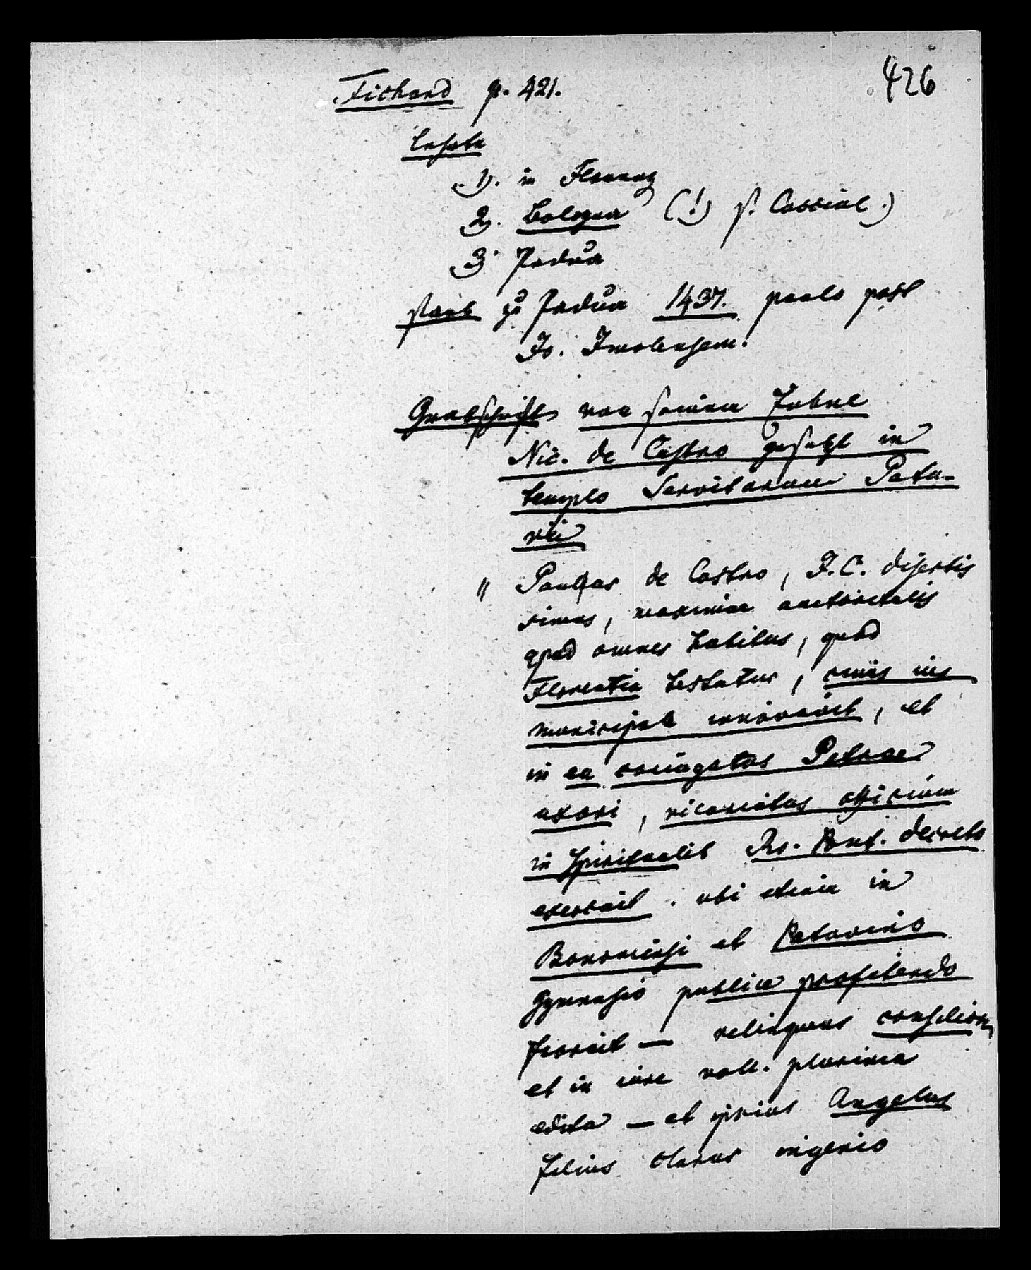 426
Fichard p. 421.
lehrte
1). in Florenz
2). Bologna (!) s. Cassial.)
3) Padua
starb zu Padua 1437. paulo post
Jo. Imolensem.
Grabschrift von seinem Sohne
Nic. de Castro gesetzt in
templo Servitarum Pata-
vii
" Paulus de Castro, J.C. disertis
simus, maximae auctoritatis
apud omnes habitus, quod
Florentia testatur, cuius ius
municipale innovavit, et
in ea coniugatus Petrae
uxori, vicariatus officium
in spiritualib Ro. Pont. decreto
exercuit. ubi etiam in
Bononiensi et Patavino
gymnasio publice profitendo
floruit — relinquens consilium
et in iure voll. plurima
edita — et ipsius Angelus
filius clarus ingenio